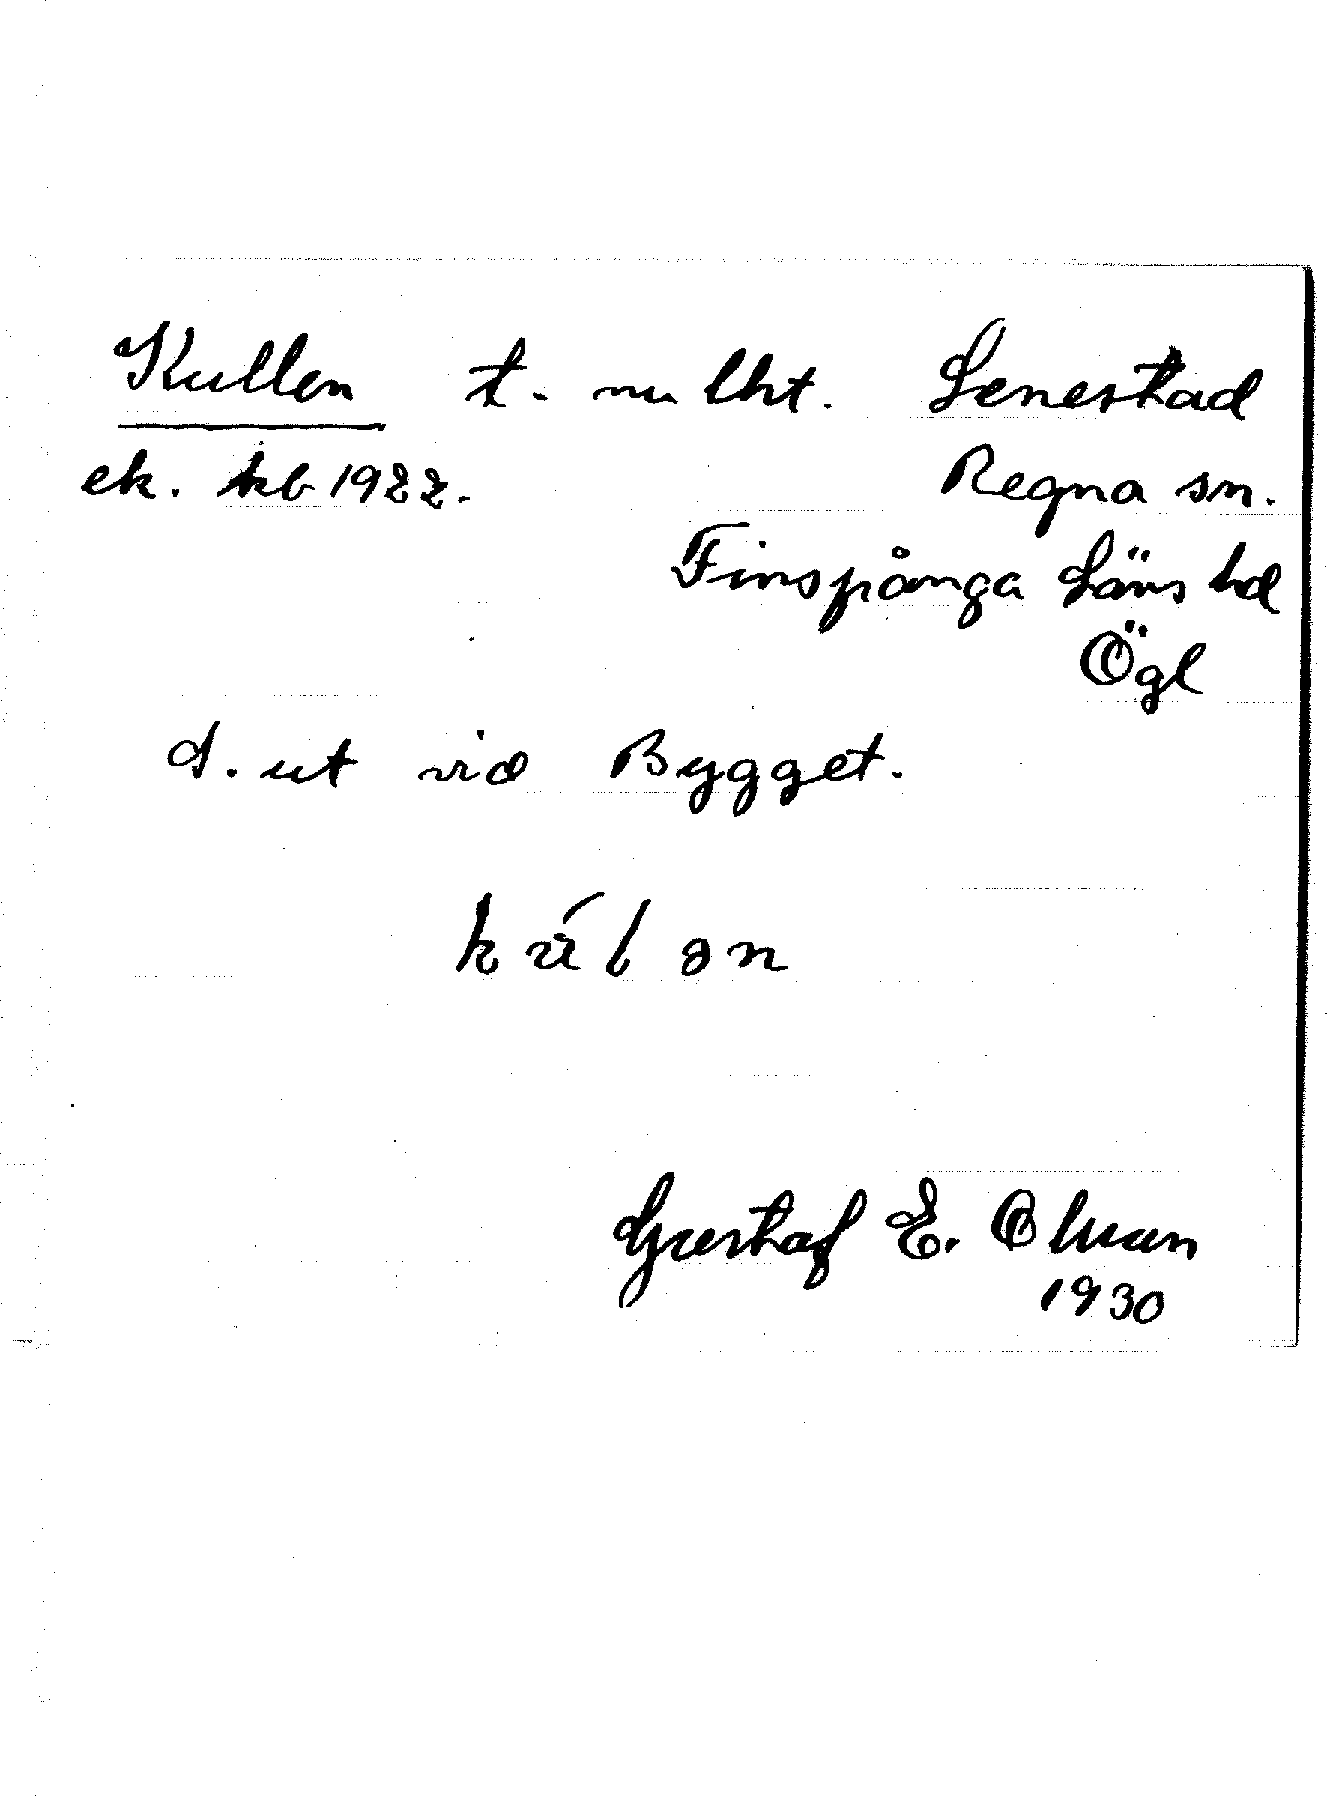 Kullen t. nu lht. Lenestad
ek. kb 1922. Regna sn.
Finspånga Läns hd
Ögl
d. ut vid Bygget.
kúlən
Gustaf E. Olman
1930